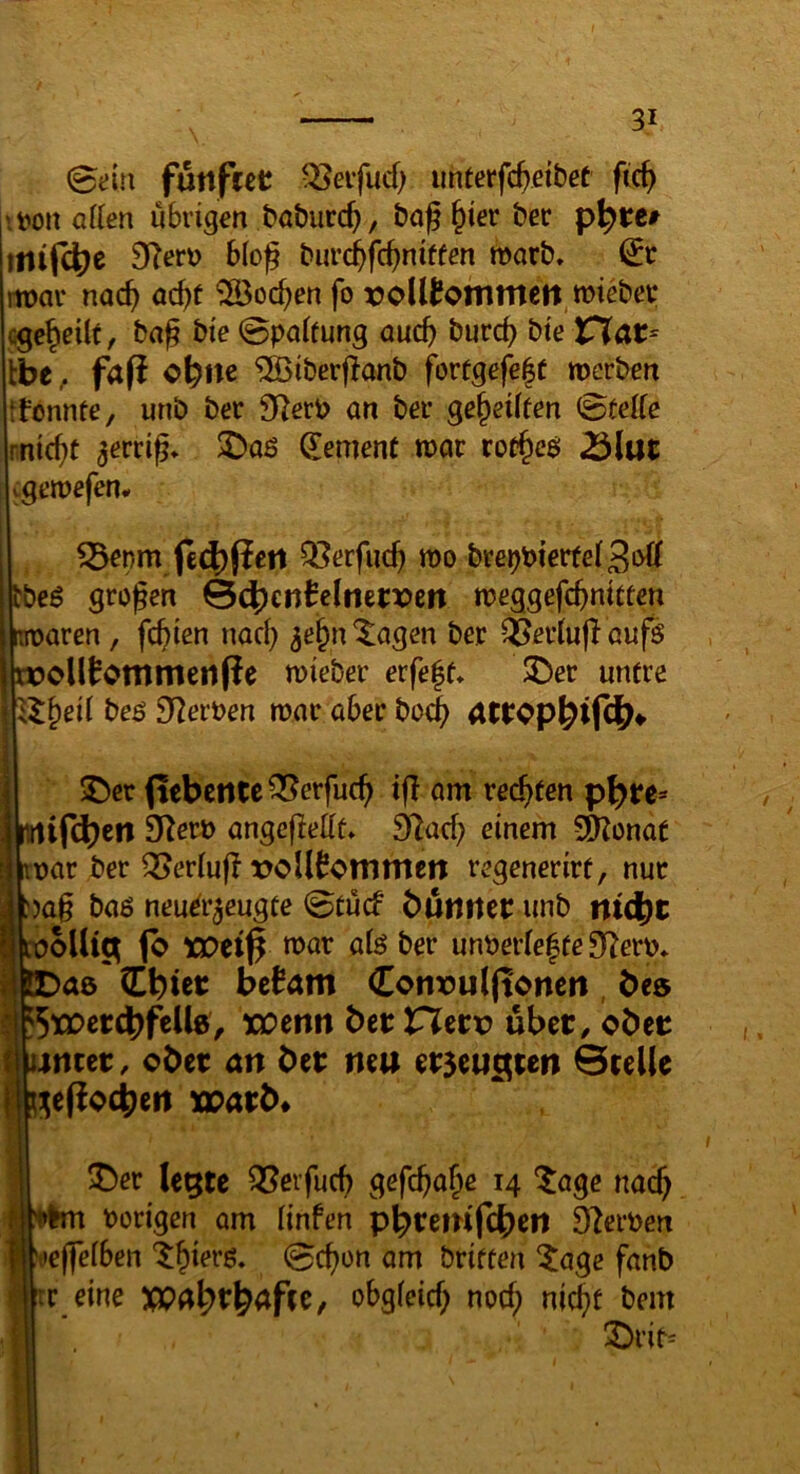 31
Sein fünfter Versuch unterscheidet sich
von allen übrigen dadurch, daß hier der phre-
nische Nerv bloß durchschnitten ward. Er
war nach acht Wochen so vollkommen wieder
geheilt, daß die Spaltung auch durch die Nar-
be, fast ohne Widerstand fortgesetzt werden
konnte, und der Nerv an der geheilten Stelle
nicht zerriß. Das Cement war rothes Blut
gewesen.
Beym sechsten Versuch wo dreyviertel Zoll
des großen Schenkelnerven weggeschnitten
waren, schien nach zehn Tagen der Verlust aufs
vollkommenste wieder ersetzt. Der untre
Theil des Nerven war aber doch atrophisch.
Der siebente Versuch ist am rechten phre-
nischen Nerv angestellt. Nach einem Monat
war der Verlust vollkommen regenerirt, nur
daß das neuerzeugte Stück dünner und nicht
völlig so weiß war als der unverletzte Nerv.
Das Thier bekam Convulsionen des
Zwerchfells, wenn der Nerv über, oder
unter, oder an der neu erzeugten Stelle
gestochen ward.
Der letzte Versuch geschahe 14 Tage nach
dem vorigen am linken phrenischen Nerven
desselben Thiers. Schon am dritten Tage fand
er eine wahrhafte, obgleich noch nicht dem
Drit-